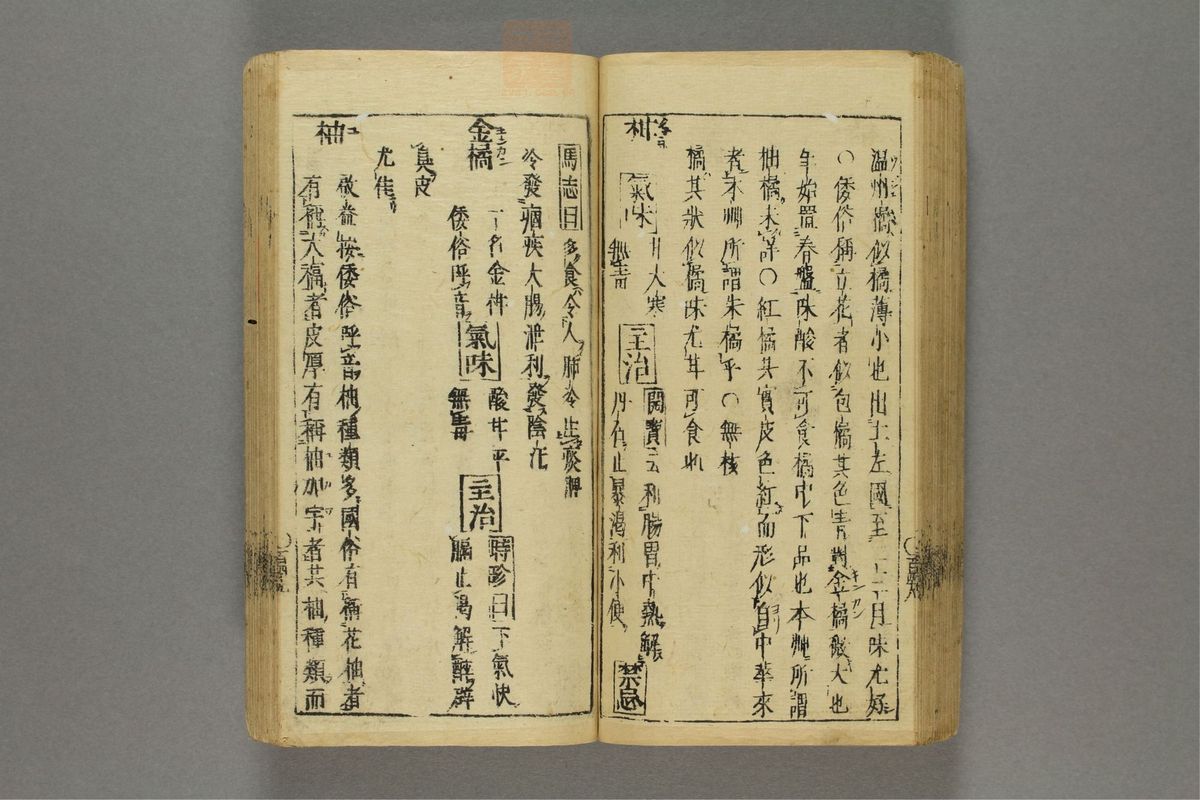 温州橘似橘薄小也出土左國至十二月味尤好
○倭俗稱立花者似包橘其色青與金橘微大也
年始置春盤味酸不可食橘中下品也本艸所謂
柚橘未詳○紅橘其實皮色紅而形似自中華來
者本艸所謂朱橘乎○無核
橘其状似橘味尤甘可食也
柑
氣味
甘大寒
無毒
主治
開寶云利腸胃中熱解
丹石止暴渴利小便
禁忌
馬志曰多食令人肺冷生痰脾
冷發痼疾大腸泄利發陰汗
金橘
キンカン
一名金柑
倭俗呼音
氣味
酸甘平
無毒
主治
時珍曰下氣快
膈止渴解酲辟
臭皮
尤佳
柚
啟益按倭俗呼音柚種類多國俗有稱花柚者
有稱大福者皮厚有稱柚加宇者其柚種類而